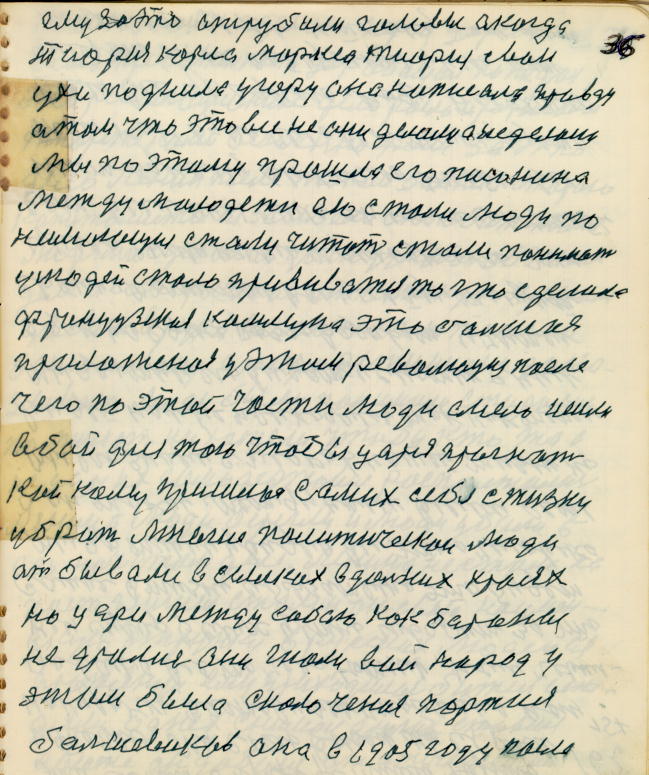 ему за это отрубали головы а когда
36
тиория карла маркса тиория свои
ухи подняла угору она написала правду
а том что это все не они делали а неделающ
мы поэтому прошла его писанина
между молодежи ею стали люди по
нимающия стали читат стали понимат
улюдей стало прививатся то что сделала
французская коммуна это
проложеная у этом революция после
чего по этой части люди смело пошли
в бой для того чтобы царя прогнат
кой кому пришлося самих себя с жизни
убрат многие политическои люди
отбывали в сылках вдалних краях
но цари между сабою как бараны
не дралис они гнали вой народ у
этом была сколоченая партия
балшевиков она в 1905 году пошла